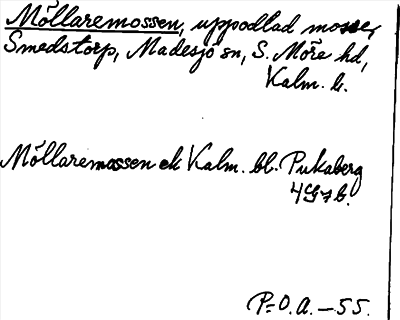 Möllaremossen, uppodlad mosse,
Smedstorp, Madesjö sn, S. Möre hd,
Kalm. l.
Möllaremossen ek Kalm. bl. Pukaberg
4G7b.
P-O.A.-55.